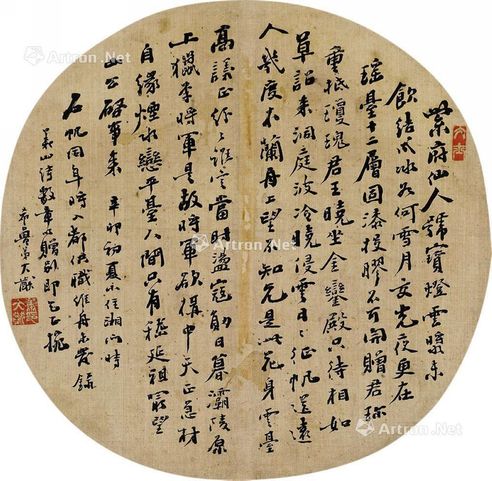 紫府仙人號寶燈雲漿未
飲結成冰如何雪月交光夜更在
瑤臺十二層固漆投膠不可開贈君珎
重抵瓊瑰君王曉坐金鑾殿只待相如
草詔來洞庭波冷曉侵雲日日征帆送遠
人幾度木蘭舟上望不知元是此花身雲臺
高議正紛紛誰定當時盪寇勛日暮灞陵原
上獵李將軍是故將軍欲構中天正急材
自緣煙水戀平臺人間只有嵇延祖最望
山公啓事來辛卯初夏小住湘
石帆同年時入都供職維舟發錄
義山詩數章以贈別即乞正捥
大澂
Artron.Net
Artron.Net
Artron.Net
Artron.Net